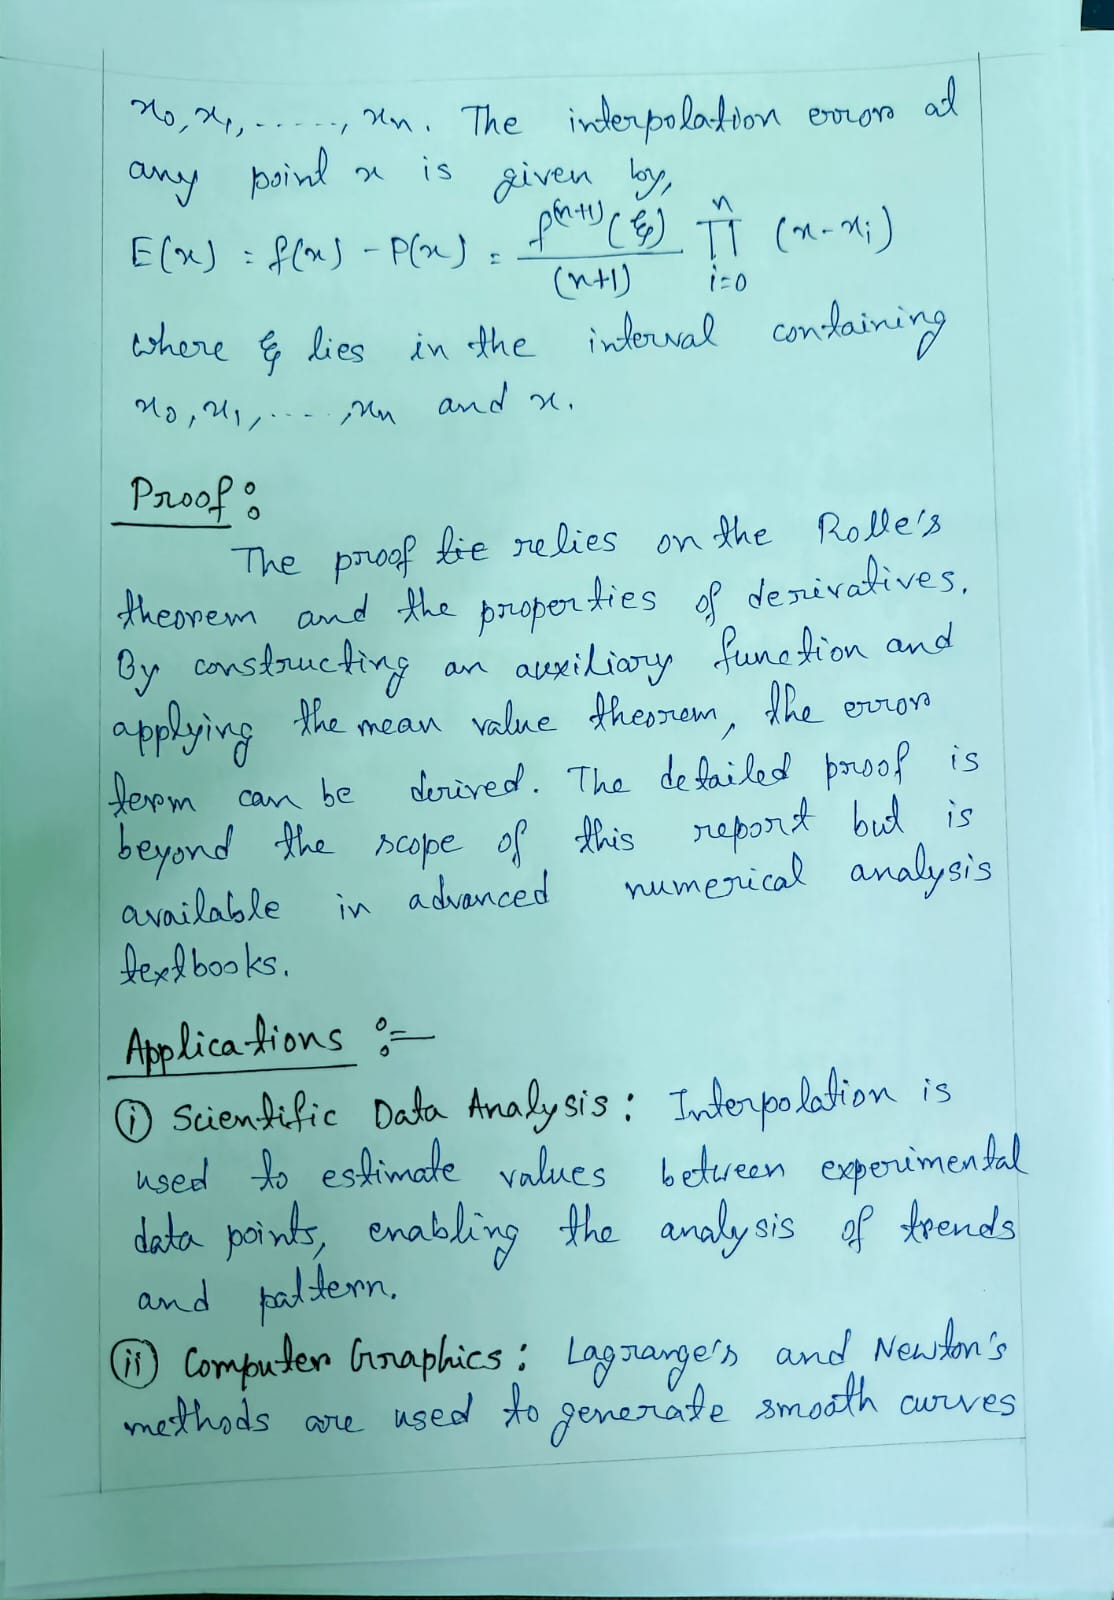 x₀, x₁, ......, xₙ. The interpolation error at
any point x is given by,
E(x) = f(x) - P(x) = f⁽ⁿ⁺¹⁾(ξ) / (n+1) ∏ᵢ₌₀ⁿ (x-xᵢ)
where ξ lies in the interval containing
x₀, x₁, ....., xₙ and x.
Proof :
The proof lie relies on the Rolle's
theorem and the properties of derivatives.
By constructing an auxiliary function and
applying the mean value theorem, the error
term can be derived. The detailed proof is
beyond the scope of this report but is
available in advanced numerical analysis
textbooks.
Applications :-
(i) Scientific Data Analysis : Interpolation is
used to estimate values between experimental
data points, enabling the analysis of trends
and pattern.
(ii) Computer Graphics : Lagrange's and Newton's
methods are used to generate smooth curves